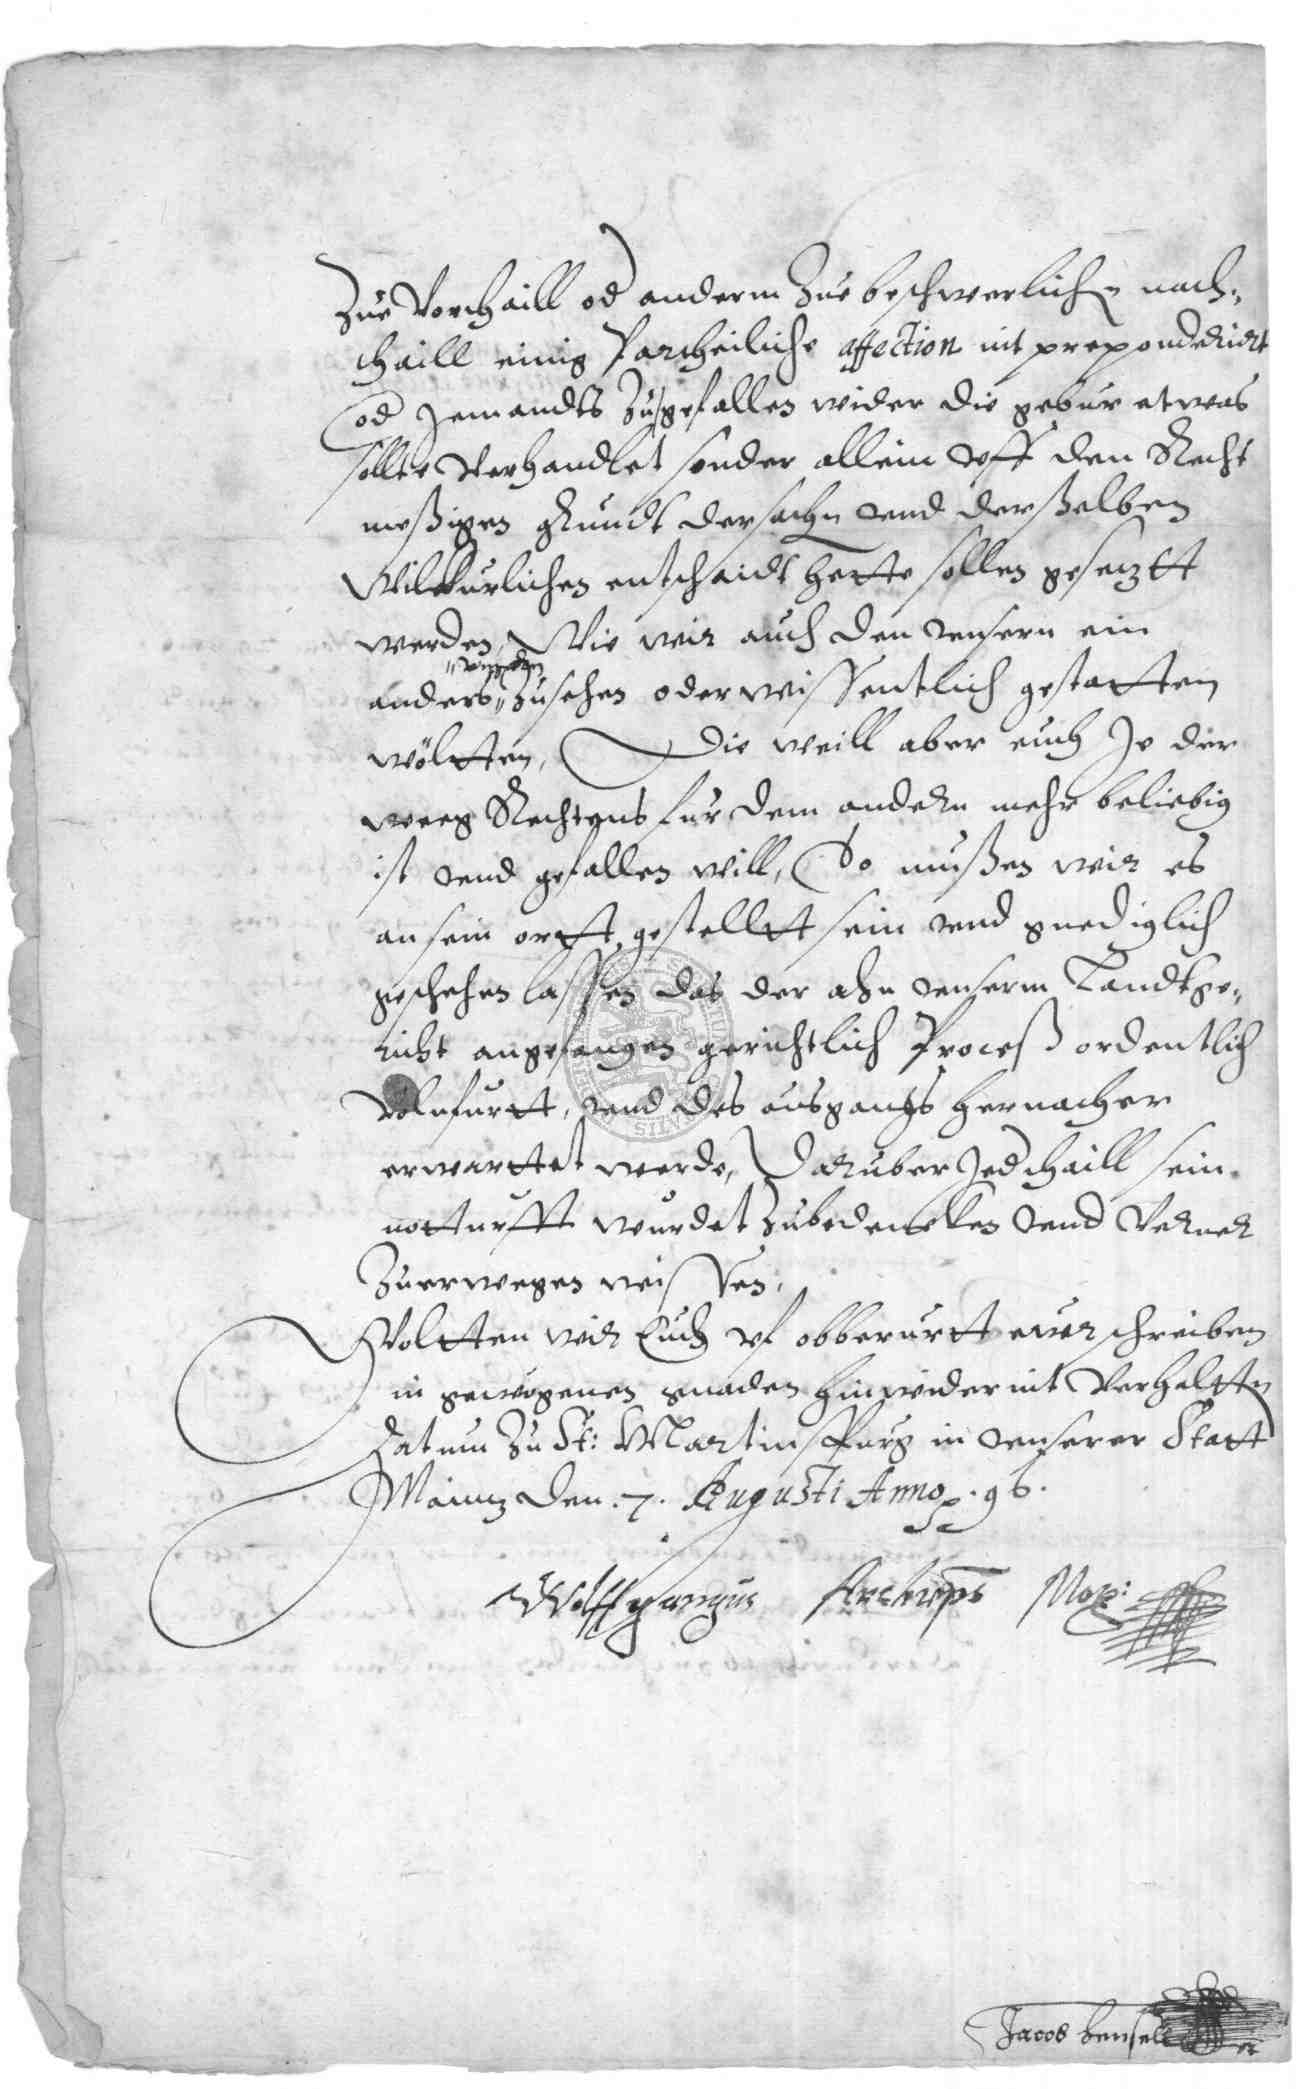 Zue Vortheill od anderm Zue beschwerlichen nach¬
theill einig Partheiliche affection nit preponderirt
od Jemandts Zugefallen wider die gebur etwas
sollte Verhandlet sonder allein vff den Recht
meßigen grundt der sachen vnd derselben
Wilkurlichen entschaidt hette sollen gesetzt
werden, Wie wir auch den vnsern ein
anders zusehen oder wissentlich gestatten
wöltten, Die weill aber euch Je der
weeg Rechtens fur dem andern mehr beliebig
ist vnd gefallen will, So mußen wir es
an sein ortt gestellt sein vnd gnediglich
geschehen lassen das der ahn vnserm Landtge¬
richt angefangen gerichtlich Proceß ordentlich
Volnfurtt, vnd des ausgangs hernacher
erwarttet werde, Daruber Jed thaill sein
notturfft wurdet Zubedencken vnd Verner
Zuerwegen wissen,
Woltten wir Euch vf obberurtt ewer schreiben
in gewogenen gnaden hinwider nit Verhaltten
Datum Zu St: Martinspurg in vnserer Statt
Maintz den .7. Augusti Anno .96.
Wolffgangus Archieps Mog:
Jacob